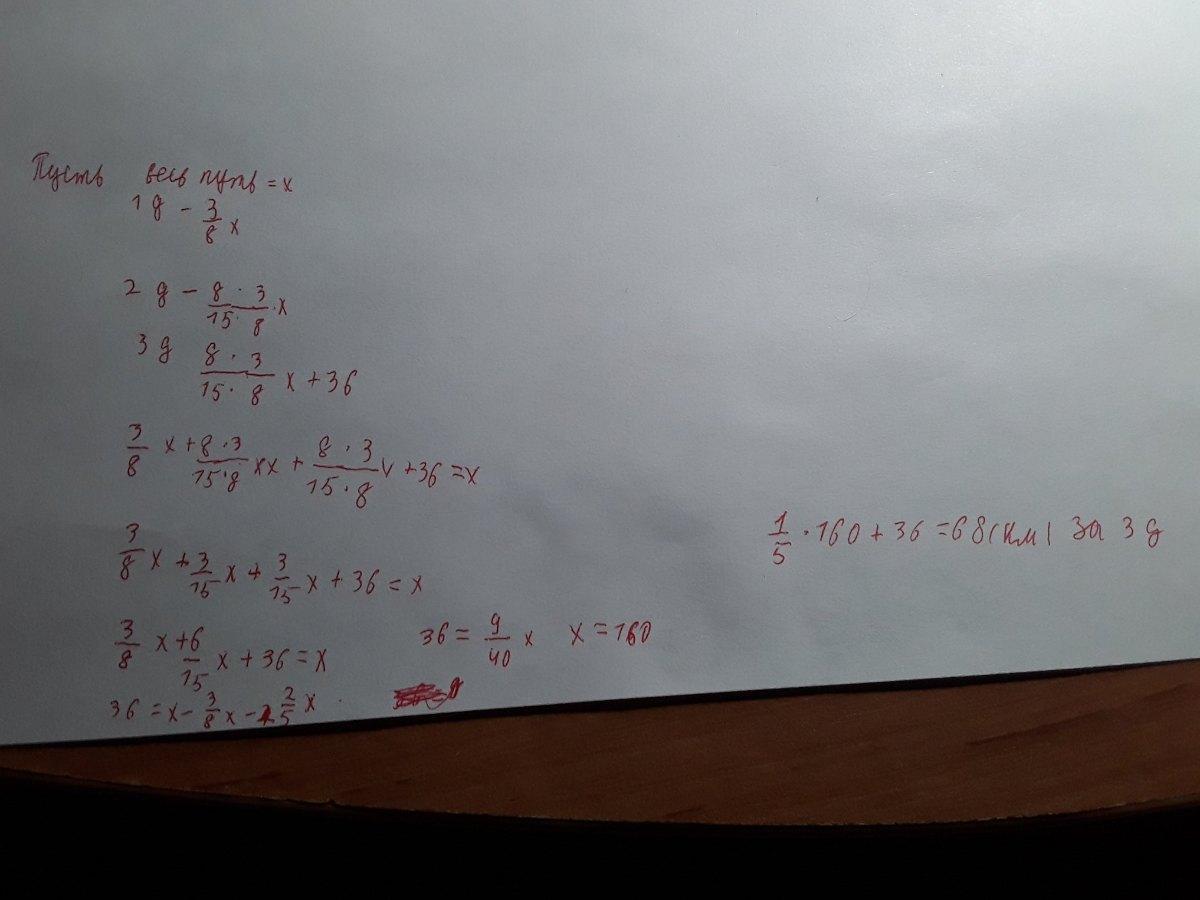 Пусть весь путь = x
1 д - 3/8 x
2 д - 8 · 3 / 15 · 8 · x
3 д 8 · 3 / 15 · 8 x + 36
3/8 x + 8 · 3 / 15 · 8 xx + 8 · 3 / 15 · 8 x + 36 = x
3/8 x + 3/15 x + 3/15 x + 36 = x
3/8 x + 6/15 x + 36 = x
36 = x - 3/8 x - 2/5 x
36 = 9/40 x x = 160
1/5 · 160 + 36 = 68 (км) за 3 д